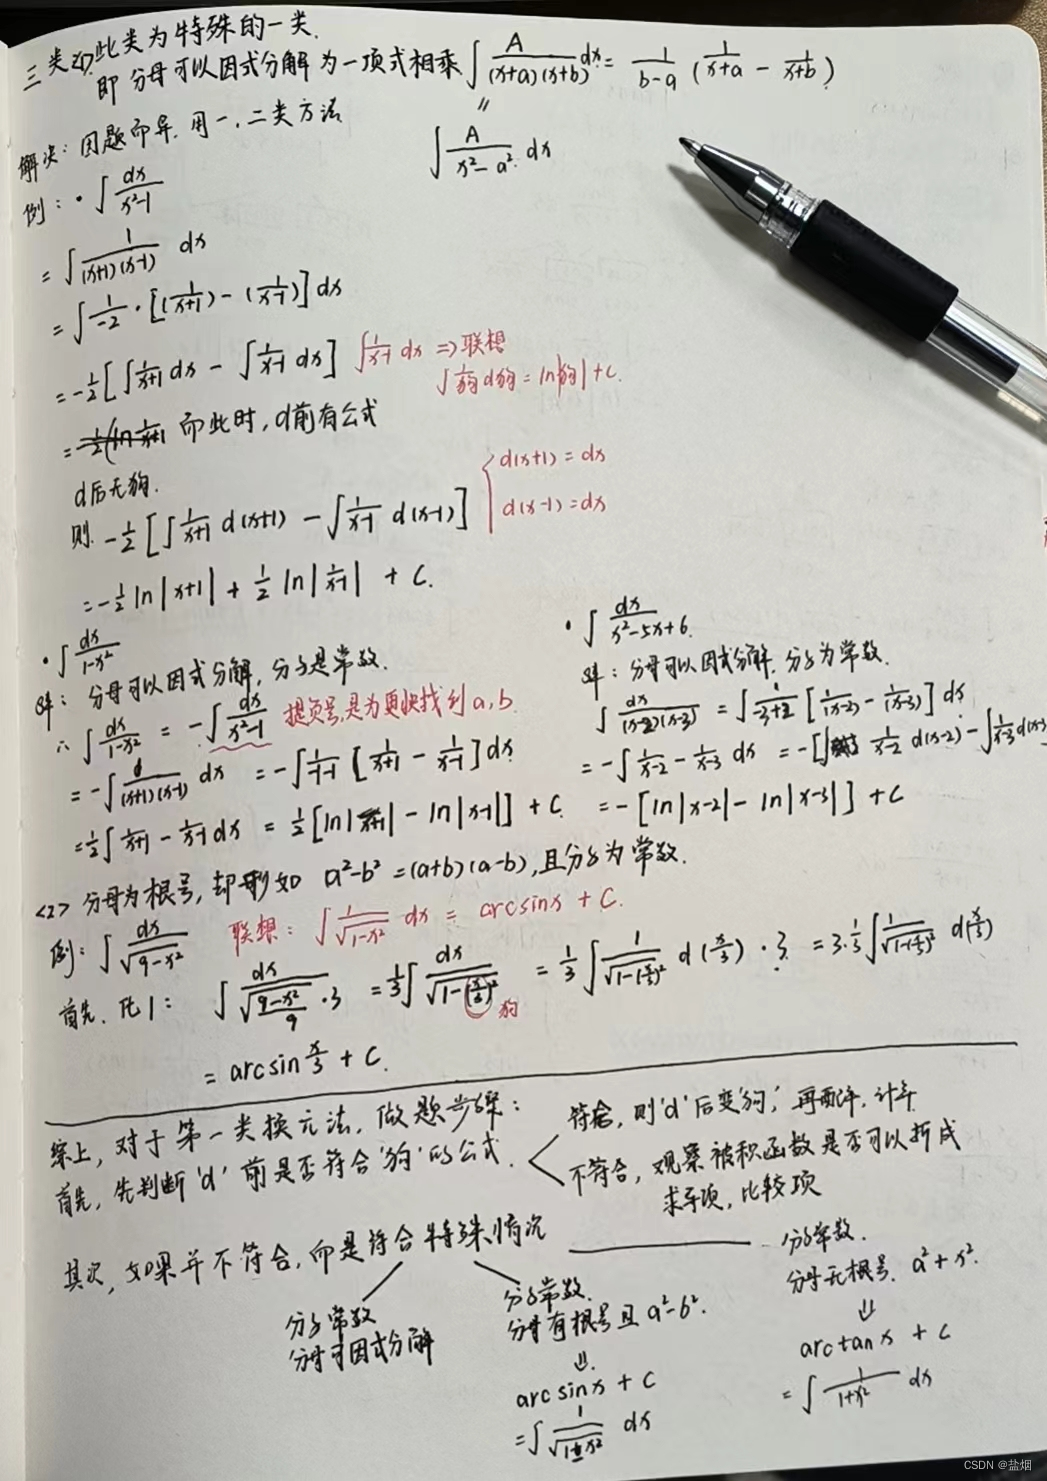 三类 此类为特殊的一类.
即 分母可以因式分解为一项式相乘 ∫ A/((x+a)(x+b)) dx = 1/(b-a) (1/(x+a) - 1/(x+b))
"
∫ A/(x²-a²) dx
解决: 因题而异. 用一.二类方法
例: · ∫ dx/(x²-1)
= ∫ 1/((x+1)(x-1)) dx
= ∫ 1/-2 · [(1/(x+1)) - (1/(x-1))] dx
= -1/2 [∫ 1/(x+1) dx - ∫ 1/(x-1) dx] ∫ 1/(x-1) dx ⇒ 联想
∫ 1/狗 d狗 = ln|狗| + C.
= 而此时, d前有公式
d后无狗.
d(x+1) = dx
d(x-1) = dx
则. -1/2 [∫ 1/(x+1) d(x+1) - ∫ 1/(x-1) d(x-1)]
= -1/2 ln|x+1| + 1/2 ln|1/(x-1)| + C.
· ∫ dx/(1-x²)
解: 分母可以因式分解, 分子是常数.
∴ ∫ dx/(1-x²) = -∫ dx/(x²-1) 提负号,是为更快找到a,b.
= -∫ /((x+1)(x-1)) dx = -∫ 1/(-1-1) [1/(x+1) - 1/(x-1)] dx
= 1/2 ∫ 1/(x+1) - 1/(x-1) dx = 1/2 [ln|x+1| - ln|x-1|] + C.
· ∫ dx/(x²-5x+6)
解: 分母可以因式分解. 分子为常数.
∫ dx/((x-2)(x-3)) = ∫ 1/(-3+2) [1/(x-2) - 1/(x-3)] dx
= -∫ 1/(x-2) - 1/(x-3) dx = -[∫ 1/(x-2) d(x-2) - ∫ 1/(x-3) d(x-3)
= -[ln|x-2| - ln|x-3|] + C
<2> 分母为根号, 却形如 a²-b² = (a+b)(a-b), 且分子为常数.
例: ∫ dx/√(9-x²) 联想: ∫ 1/√(1-x²) dx = arcsinx + C.
首先. 化1: ∫ dx/(√((9-x²)/9) ·3) = 1/3 ∫ dx/√(1-(x/3)²) = 1/3 ∫ 1/√(1-(x/3)²) d(x/3) · 3 = 3·1/3 ∫ 1/√(1-(x/3)²) d(x/3)
狗
= arcsin x/3 + C.
综上, 对于第一类换元法, 做题步骤:
首先, 先判断'd'前是否符合'狗'的公式.
符合, 则'd'后变'狗', 再配平, 计算
不符合, 观察被积函数是否可以拆成
求导项, 比较项
其次, 如果并不符合, 而是符合特殊情况
分子常数
分母可因式分解
分子常数.
分母有根号且a²-b².
⇓
arcsinx + C
= ∫ 1/√(1-x²) dx
分子常数.
分母无根号. a²+x².
⇓
arctanx + C
= ∫ 1/(1+x²) dx
CSDN @盐烟